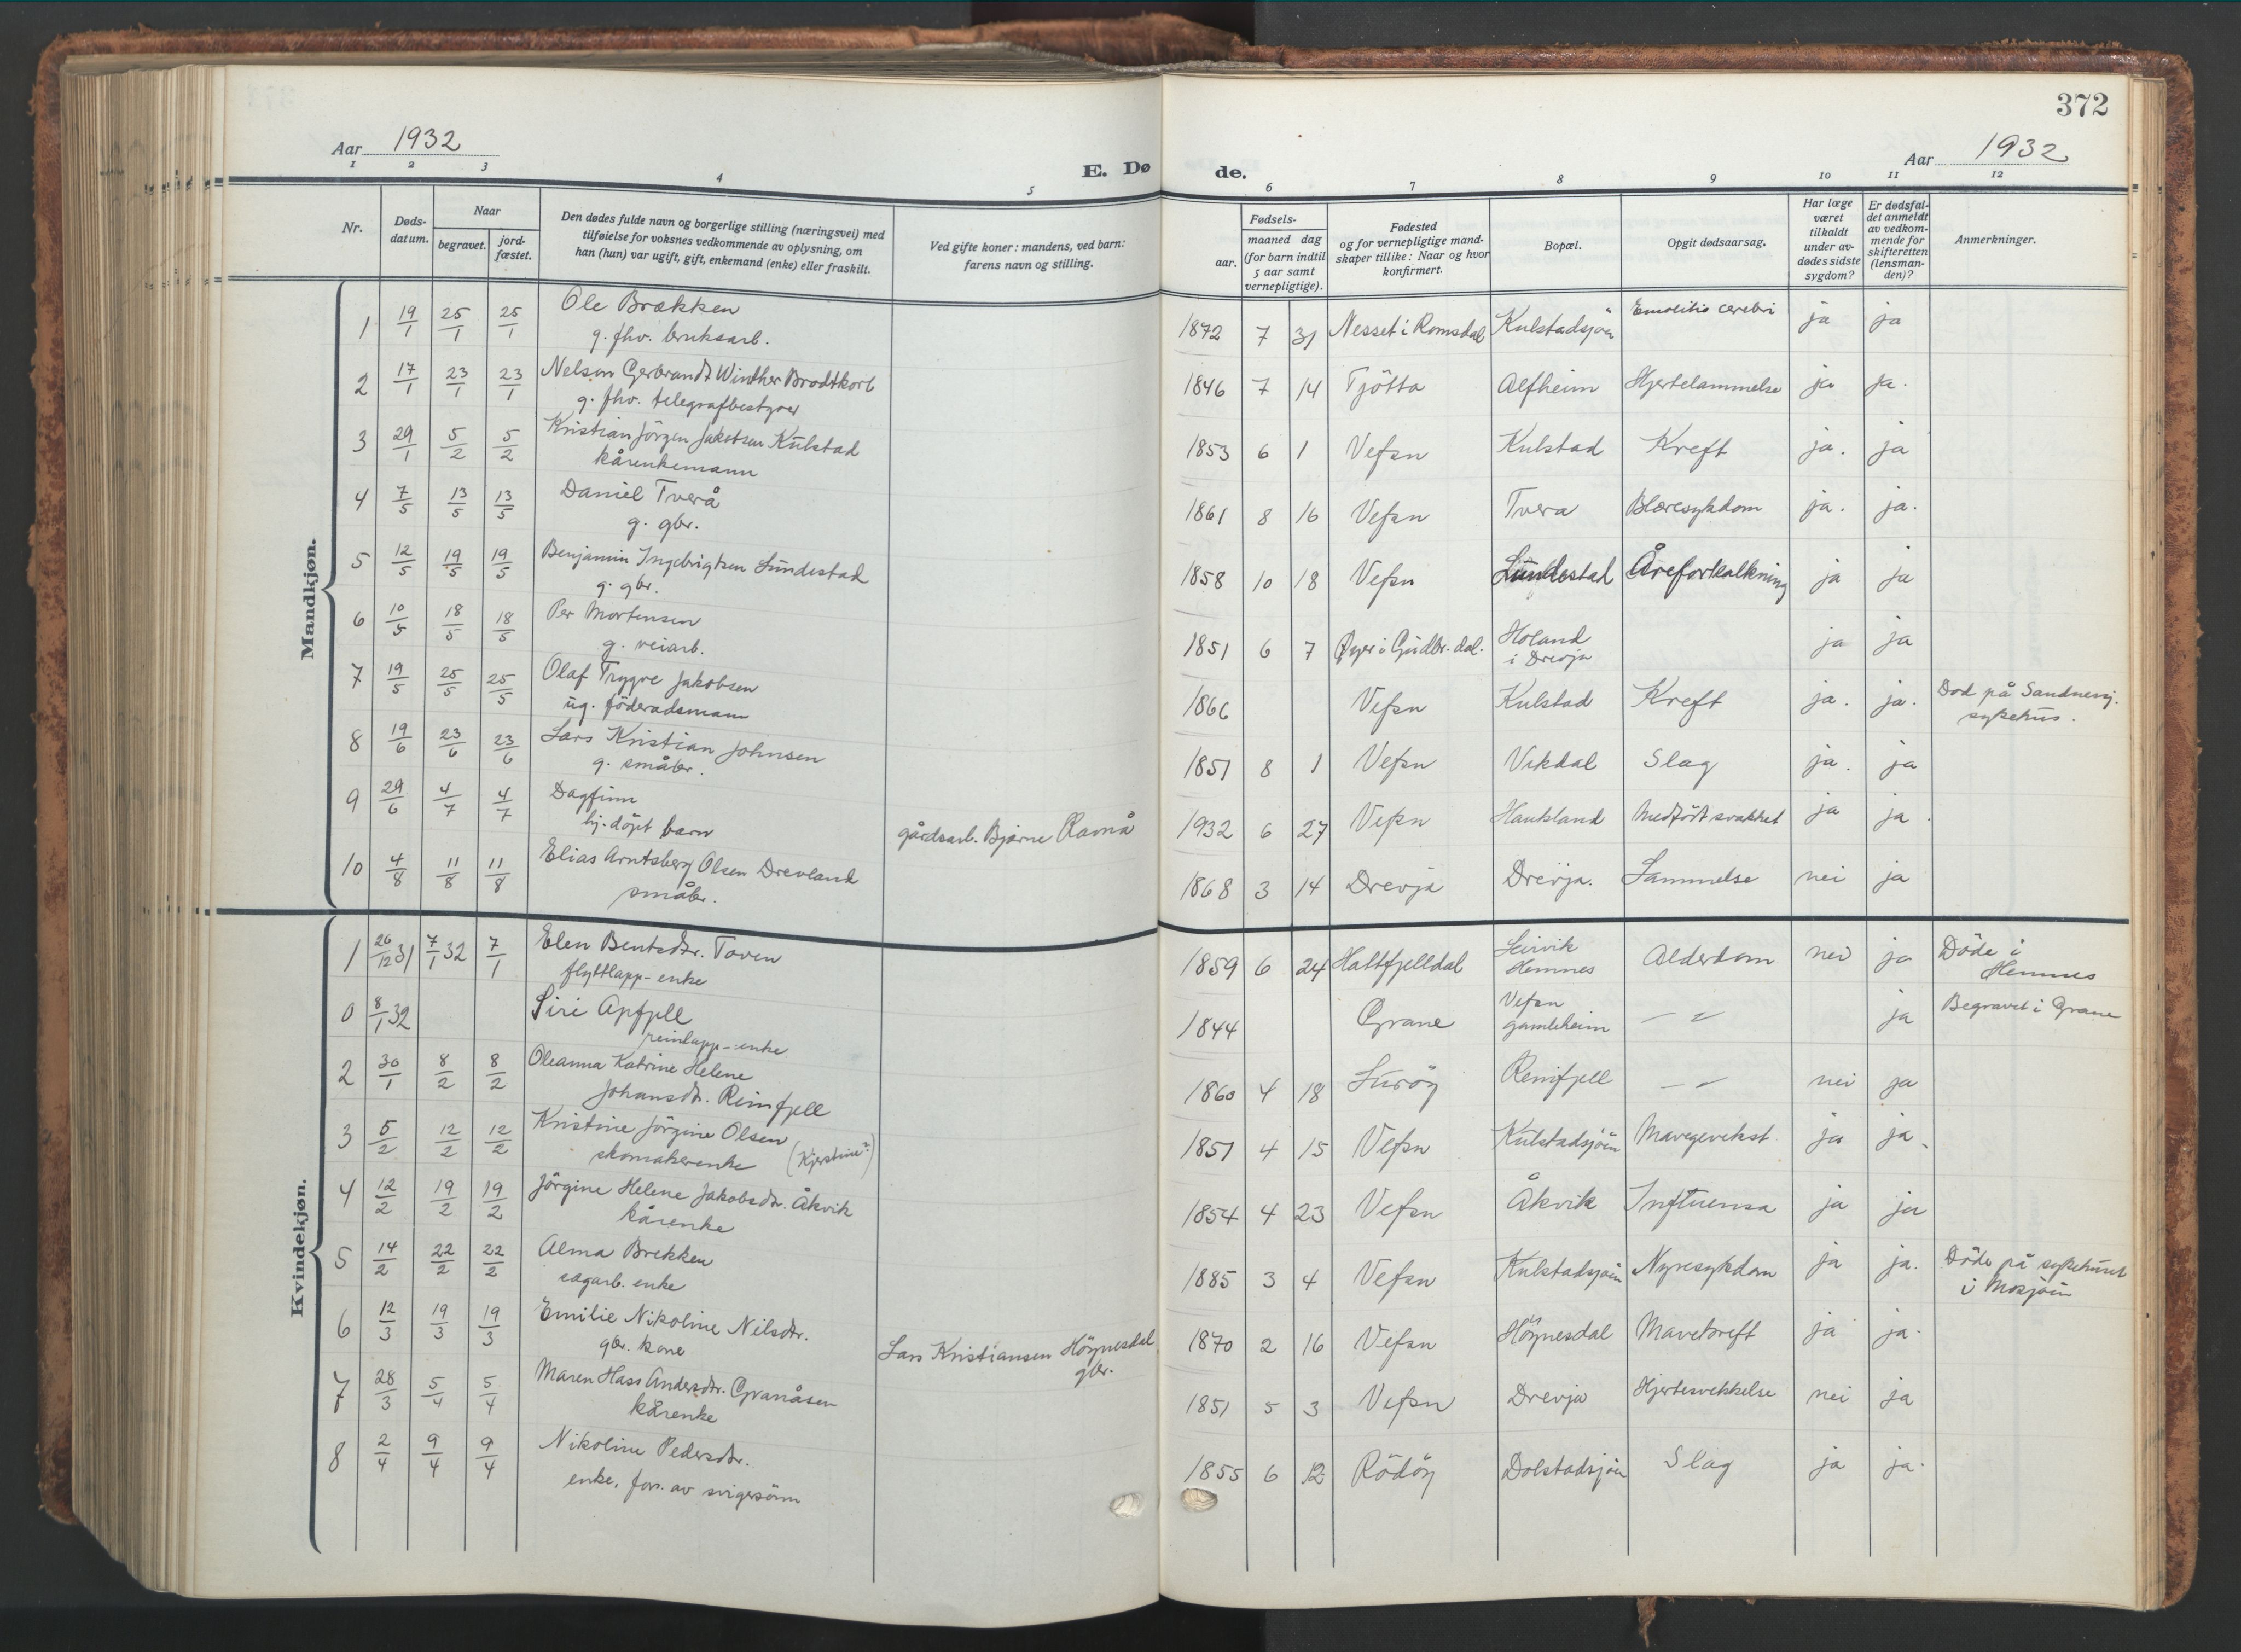 372
Aar 1932
E. Døde.
Aar 1932
1 2 3 4 5 6 7 8 9 10 11 12
Nr.
Døds-
datum.
Naar
begravet.
jord-
fæstet.
Den dødes fulde navn og borgerlige stilling (næringsvei) med
tilføielse for voksnes vedkommende av oplysning, om
han (hun) var ugift, gift, enkemand (enke) eller fraskilt.
Ved gifte koner: mandens, ved barn:
farens navn og stilling.
Fødsels-
aar.
maaned dag
(for barn indtil
5 aar samt
vernepligtige).
Fødested
og for vernepligtige mand-
skaper tillike: Naar og hvor
konfirmert.
Bopæl.
Opgit dødsaarsag.
Har læge
været
tilkaldt
under av-
dødes sidste
sygdom?
Er dødsfal-
det anmeldt
av vedkom-
mende for
skifteretten
(lensman-
den)?
Anmerkninger.
Mandkjøn.
1 19/1 25/1 25/1 Ole Brækken 1872 7 31 Nesset i Romsdal Kulstadsjøen cerebri ja ja
g. fhv. bruksarb.
2 17/1 23/1 23/1 Nelson Gerbrandt Winther Brodtkorb 1846 7 14 Tjötta Alfheim Hjertelammelse ja ja.
g. fhv. telegrafbestyrer
3 29/1 5/2 5/2 Kristian Jörgen Jakobsen Kulstad 1853 6 1 Vefsn Kulstad Kreft ja. ja
kårenkemann
4 7/5 13/5 13/5 Daniel Tverå 1861 8 16 Vefsn Tvera Blæresykdom ja. ja.
g. gbr.
5 12/5 19/5 19/5 Benjamin Ingebrigtsen Lundestad 1858 10 18 Vefsn Lundestad Åreforkalkning ja ja
g. gbr.
6 10/5 18/5 18/5 Per Mortensen 1851 6 7 Øyer i Gudbr.dal. Holand i Drevja ja ja
g. veiarb.
7 19/5 25/5 25/5 Olaf Trygve Jakobsen 1866 Vefsn Kulstad Kreft ja. ja. Död på Sandnessj.
ug. föderadsmann sykehus.
8 19/6 23/6 23/6 Lars Kristian Johnsen 1851 8 1 Vefsn Vikdal Slag ja. ja
g. småbr.
9 29/6 4/7 4/7 Dagfinn gårdsarb. Bjarne Ramå 1932 6 27 Vefsn Haukland Medfört svakhet ja ja.
hj.döpt barn
10 4/8 11/8 11/8 Elias Arntsberg Olsen Drevland 1868 3 14 Drevja Drevja. Lammelse nei ja
småbr.
Kvindekjøn.
1 26/12 31 7/1 32 7/1 Elen Bentsdtr. Toven 1859 6 24 Hattfjelldal Leirvik Hemnes Alderdom nei ja Döde i
flyttlapp-enke Hemnes
0 8/1 32 Siri Apfjell 1844 Grane Vefsn gamleheim — " — ja Begravet i Grane
reinlapp-enke
2 30/1 8/2 8/2 Oleanna Katrine Helene 1860 4 18 Luröy Reinfjell — " — nei ja
Johansdtr. Reinfjell
3 5/2 12/2 12/2 Kristine Jörgine Olsen 1851 4 15 Vefsn Kulstadsjöen Mavegevekst ja ja.
skomakerenke (Kjerstine?)
4 12/2 19/2 19/2 Jörgine Helene Jakobsdtr. Åkvik 1854 4 23 Vefsn Åkvik Influensa ja ja
kårenke
5 14/2 22/2 22/2 Alma Brekken 1885 3 4 Vefsn Kulstadsjöen Nyresykdom ja ja. Döde på sykehuset
sagarb. enke i Mosjöen
6 12/3 19/3 19/3 Emilie Nikoline Nilsdtr. Lars Kristiansen Höynesdal 1870 2 16 Vefsn Höynesdal Mavekreft ja ja.
gbr. kone gbr.
7 28/3 5/4 5/4 Maren Hass Andersdtr. Granåsen 1851 5 3 Vefsn Drevja Hjertesvekkelse nei ja
kårenke
8 2/4 9/4 9/4 Nikoline Pedersdtr. 1855 6 12 Rödöy Dolstadsjöen Slag ja ja.
enke, fors. av svigersönn